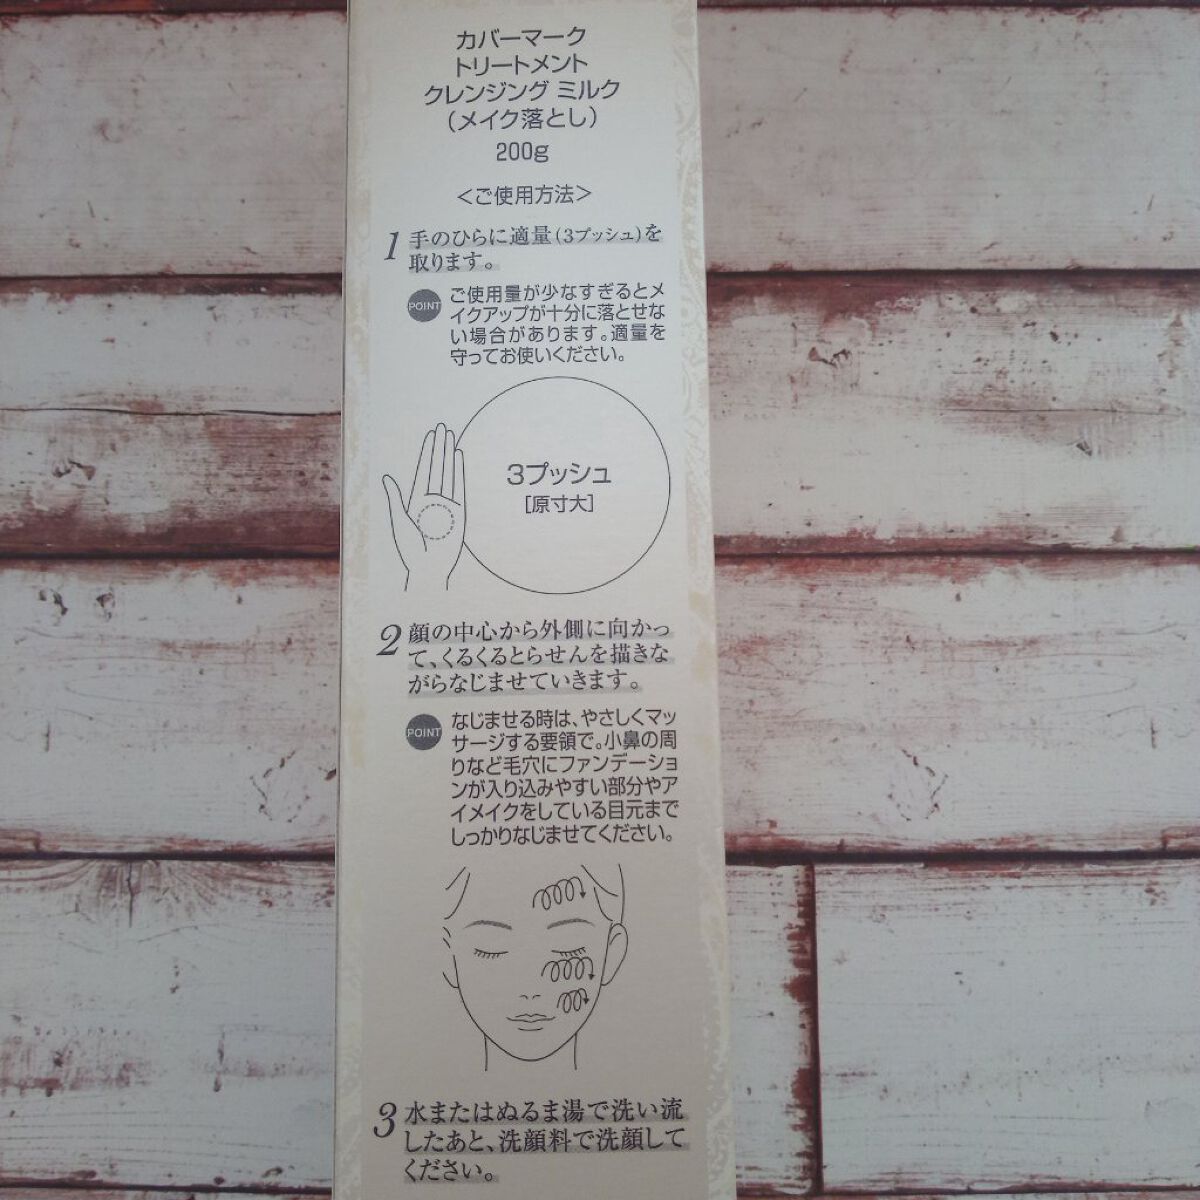 カバーマーク
トリートメント
クレンジング ミルク
（メイク落とし）
200g
＜ご使用方法＞
1 手のひらに適量(3プッシュ)を
取ります。
POINT ご使用量が少なすぎるとメ
イクアップが十分に落とせな
い場合があります。適量を
守ってお使いください。
3プッシュ
[原寸大]
2 顔の中心から外側に向かっ
て、くるくるとらせんを描きな
がらなじませていきます。
POINT なじませる時は、やさしくマッ
サージする要領で。小鼻の周
りなど毛穴にファンデーショ
ンが入り込みやすい部分やア
イメイクをしている目元まで
しっかりなじませてください。
3 水またはぬるま湯で洗い流
したあと、洗顔料で洗顔して
ください。